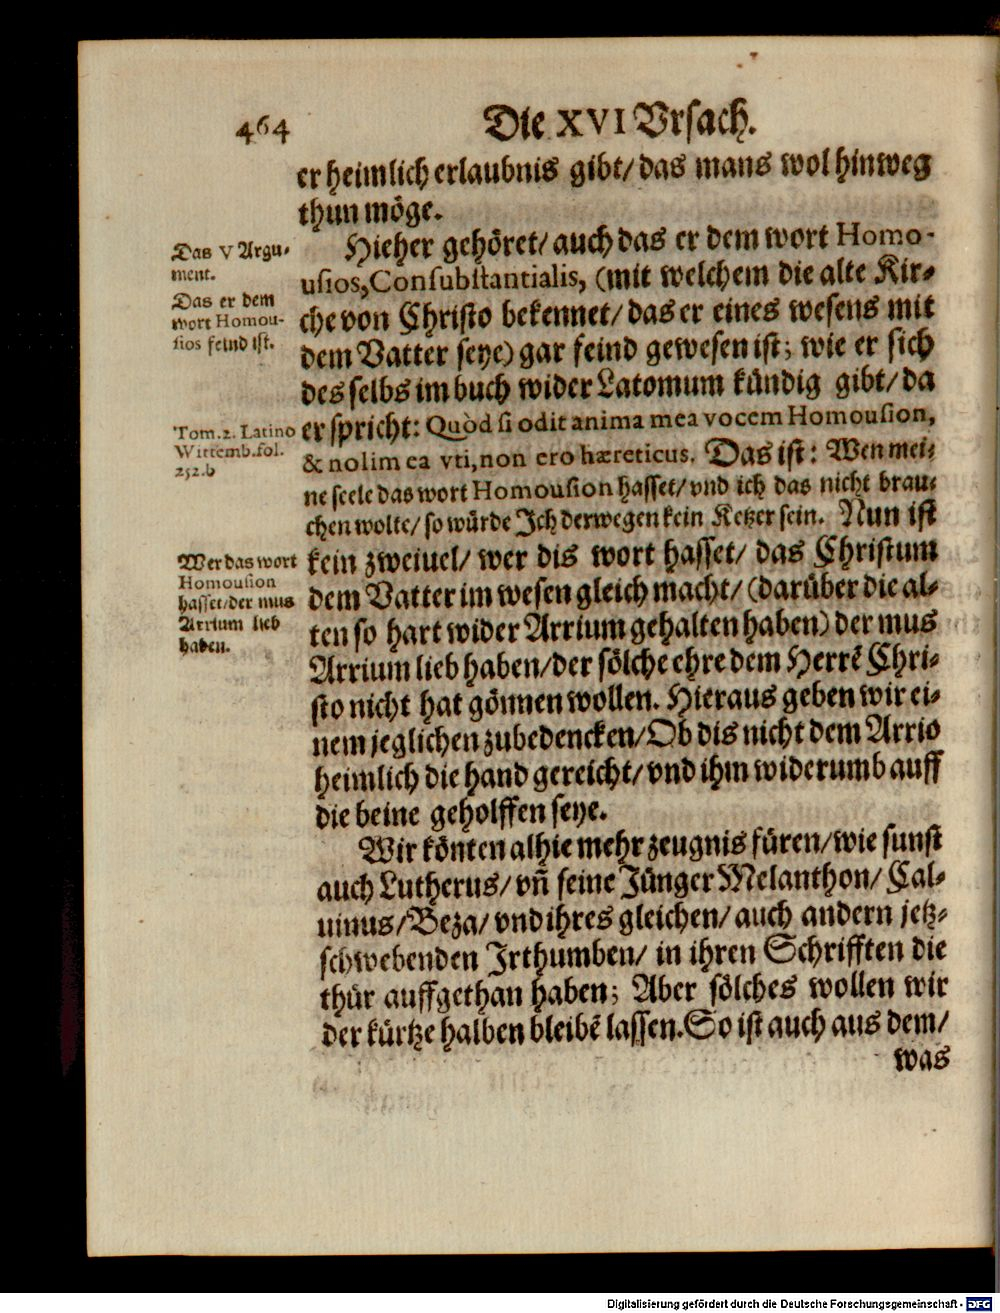 464
Die XVI Vrsach.
er heimlich erlaubnis gibt/ das mans wol hinweg
thun möge.
Das V Argu-
ment.
Das er dem
wort Homou-
sios feind ist.
Hieher gehöret/ auch das er dem wort Homo-
usios, Consubstantialis, (mit welchem die alte Kir-
che von Christo bekennet/ das er eines wesens mit
dem Vatter seye) gar feind gewesen ist; wie er sich
des selbs im buch wider Latomum kündig gibt/ da
Tom.2. Latino
Wittemb.fol.
252.b
er spricht: Quòd si odit anima mea vocem Homousion,
& nolim ea vti, non ero hæreticus. Das ist: Wen mei-
ne seele das wort Homousion hasset/ vnd ich das nicht brau-
chen wolte/ so würde Ich derwegen kein Ketzer sein. Nun ist
Wer das wort
Homousion
hasset/ der mus
Arrium lieb
haben.
kein zweiuel/ wer dis wort hasset/ das Christum
dem Vatter im wesen gleich macht/ (darüber die al-
ten so hart wider Arrium gehalten haben) der mus
Arrium lieb haben/ der sölche ehre dem Herrē Chri-
sto nicht hat gönnen wollen. Hieraus geben wir ei-
nem jeglichen zubedencken/ Ob dis nicht dem Arrio
heimlich die hand gereicht/ vnd ihm widerumb auff
die beine geholffen seye.
Wir könten alhie mehr zeugnis füren/ wie sunst
auch Lutherus/ vñ seine Jünger Melanthon/ Cal-
uinus/ Beza/ vnd ihres gleichen/ auch andern jetz-
schwebenden Irthumben/ in ihren Schrifften die
thür auffgethan haben; Aber sölches wollen wir
der kürtze halben bleibē lassen. So ist auch aus dem/
was
Digitalisierung gefördert durch die Deutsche Forschungsgemeinschaft - DFG